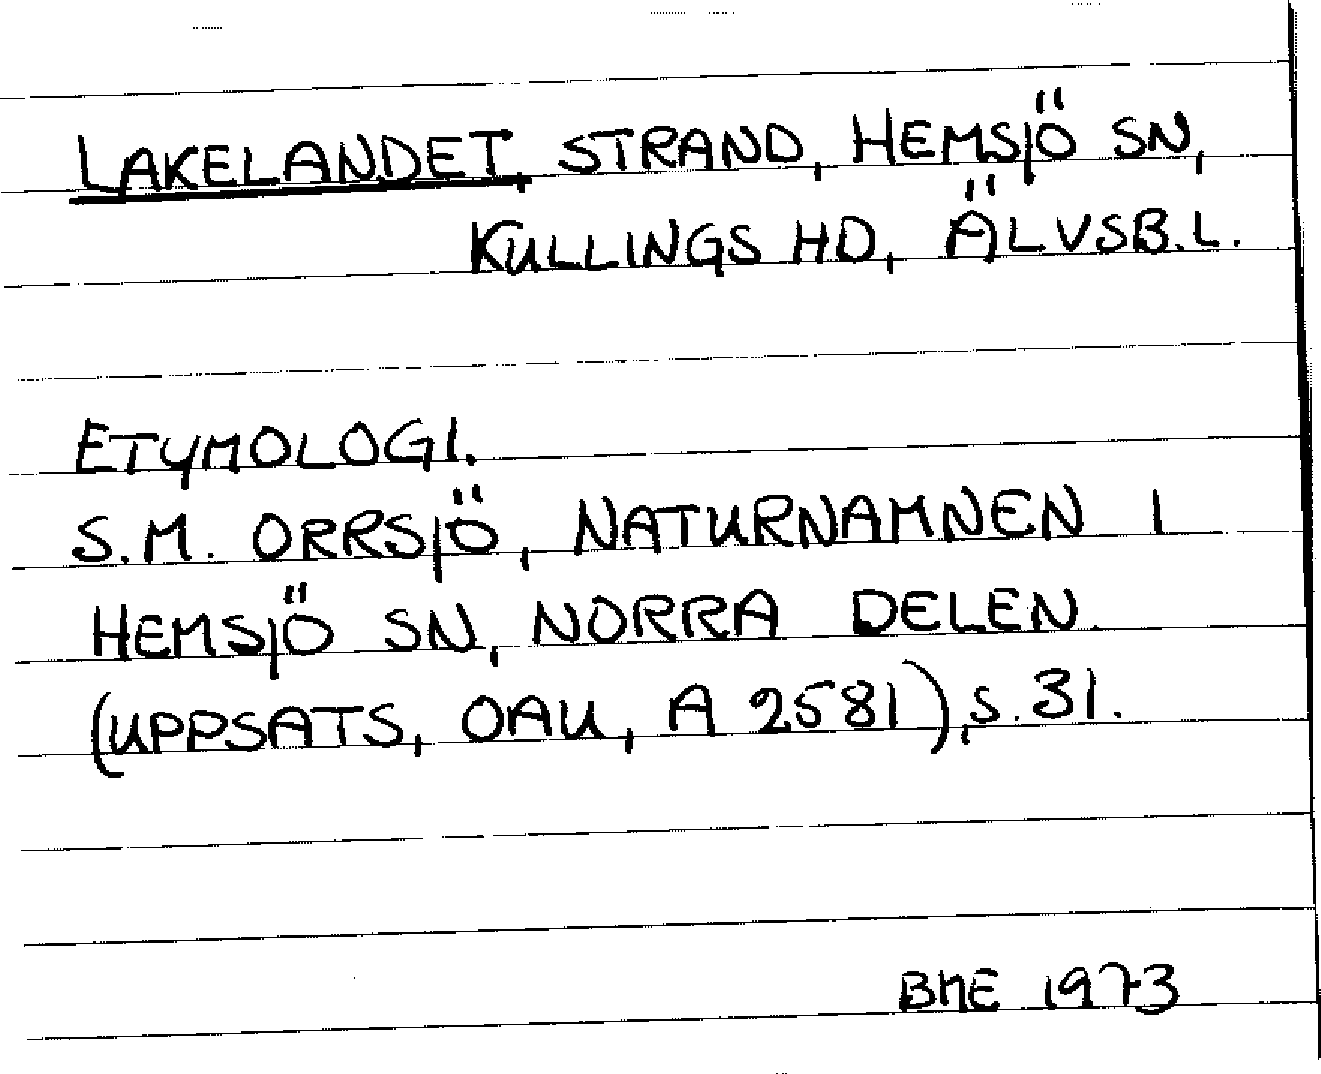 LAKELANDET, STRAND, HEMSJÖ SN,
KULLINGS HD, ÄLVSB.L.
ETYMOLOGI.
S.M. ORRSJÖ, NATURNAMNEN I
HEMSJÖ SN, NORRA DELEN.
(UPPSATS, OAU, A 2581), S. 31.
BME 1973